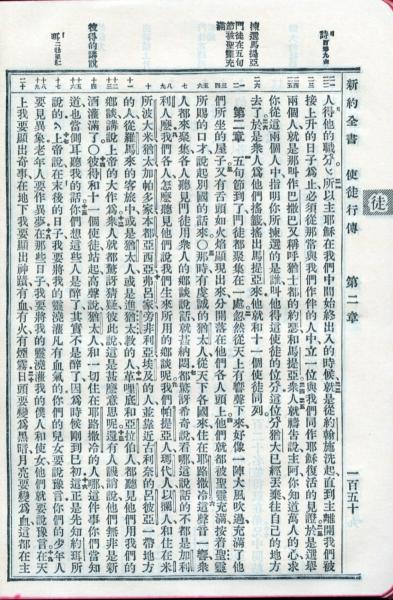 新約全書 使徒行傳 第二章 一百五十
徒
揀選馬提亞
門徒在五旬
節被聖靈充
滿
彼得的講說
人得他的職分、所以主耶穌在我們中間始終出入的時候就是從約翰施洗起直到主離開我們被
接上升的日子為止必須從那常與我們作伴的人中立一位與我們同作耶穌復活的見證於是選舉
兩個人就是那叫作巴撒巴又稱呼猶士都的約瑟和馬提亞眾人就禱告說主阿你知道萬人的心求
你從這兩個人中指明你所揀選的是誰叫他得這使徒的位分這位分猶大已經丟棄往自己的地方
去了於是眾人為他們搖籤搖出馬提亞來他就和十一個使徒同列
第二章 五旬節到了門徒都聚集在一處忽然從天上有響聲下來好像一陣大風吹過充滿了他
們所坐的屋子又有舌頭如火焰顯現出來分開落在他們各人頭上他們就都被聖靈充滿按着聖靈
所賜的口才說起別國的話來〇那時有虔誠的猶太人從天下各國來住在耶路撒冷這聲音一響眾
人都來聚集各人聽見門徒用眾人的鄉談說話就甚納悶都驚訝希奇說看哪這說話的不都是加利
利人麼我們各人怎麼聽見他們說我們生來所用的鄉談呢我們帕提亞人瑪代人以攔人和住在米
所波大米猶太加帕多家本都亞西亞弗呂家旁非利亞埃及的人並靠近古利奈的呂彼亞一帶地方
的人從羅馬來的客旅中或是猶太人或是進猶太教的人革哩底和亞拉伯人都聽見他們用我們的
鄉談講說上帝的大作為眾人就都驚訝猜疑彼此說這是甚麼意思呢還有人譏誚說他們無非是新
酒灌滿了〇彼得和十一個使徒站起高聲說猶太人和一切住在耶路撒冷的人哪這件事你們當知
道也當側耳聽我的話你們想這些人是醉了其實不是醉了因為時候剛到巳初這正是先知約珥所
說的上帝說在末後的日子我要將我的靈澆灌凡有血氣的你們的兒女要說豫言你們的少年人
要見異象老年人要作異夢在那些日子我要將我的靈澆灌我的僕人和使女他們就要說豫言在天
上我要顯出奇事在地下我要顯出神蹟有血有火有煙霧日頭要變為黑暗月亮要變為血這都在主